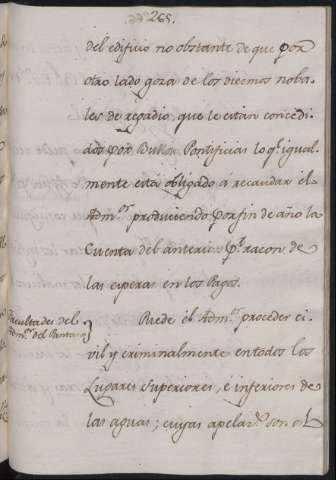 265.
del edificio no obstante de que por
otro lado goza de los diecmos noba-
les de regadio, que le estan concedi-
dos por Bullas Pontificias lo q.e igual-
mente está obligado á recaudar el
Adm.or produciendo por fin de año la
Cuenta del anterior p.r racon de
las esperas en los Pagos.
Facultades del
Adm.or del Pantano
Puede el Adm.or proceder ci-
vil y criminalmente en todos los
Lugares Superiores, e inferiores de
las aguas; cuyas apelac.s son al